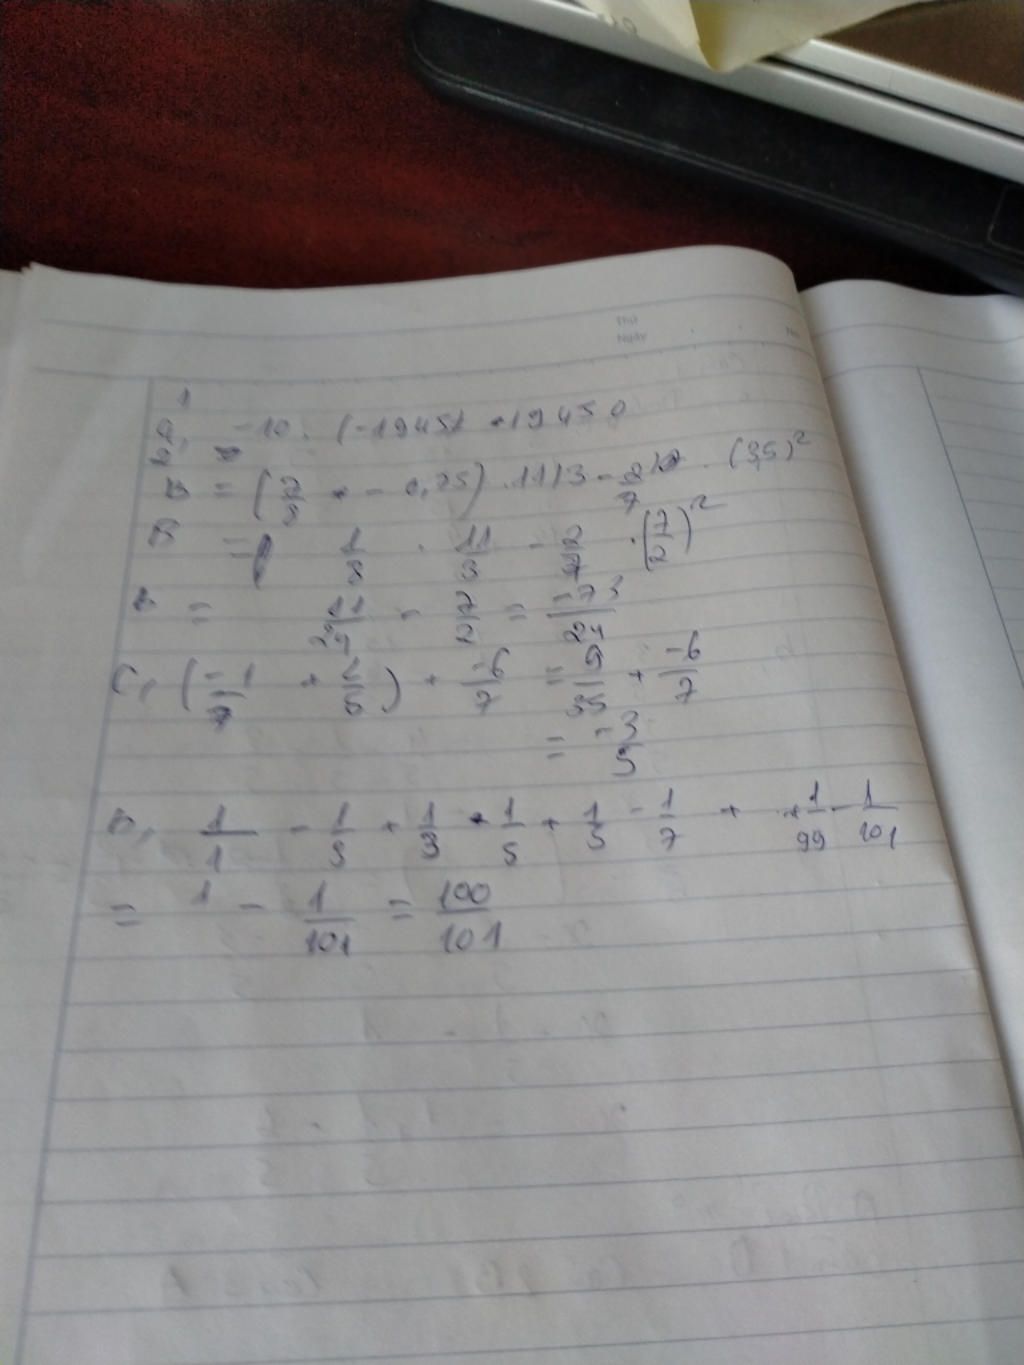 Thứ
Ngày
No
1
a, -10 . (-1945) = 19450
2,
B = (7/8 - 0,75) . 11/3 - 2/7 . (3,5)²
B = 1/8 . 11/3 - 2/7 . (7/2)²
B = 11/24 - 7/2 = -73/24
C, (-1/7 + 2/5) + -6/7 = 9/35 + -6/7
= -3/5
D, 1/1 - 1/3 + 1/3 - 1/5 + 1/5 - 1/7 + +1/99 - 1/101
= 1 - 1/101 = 100/101